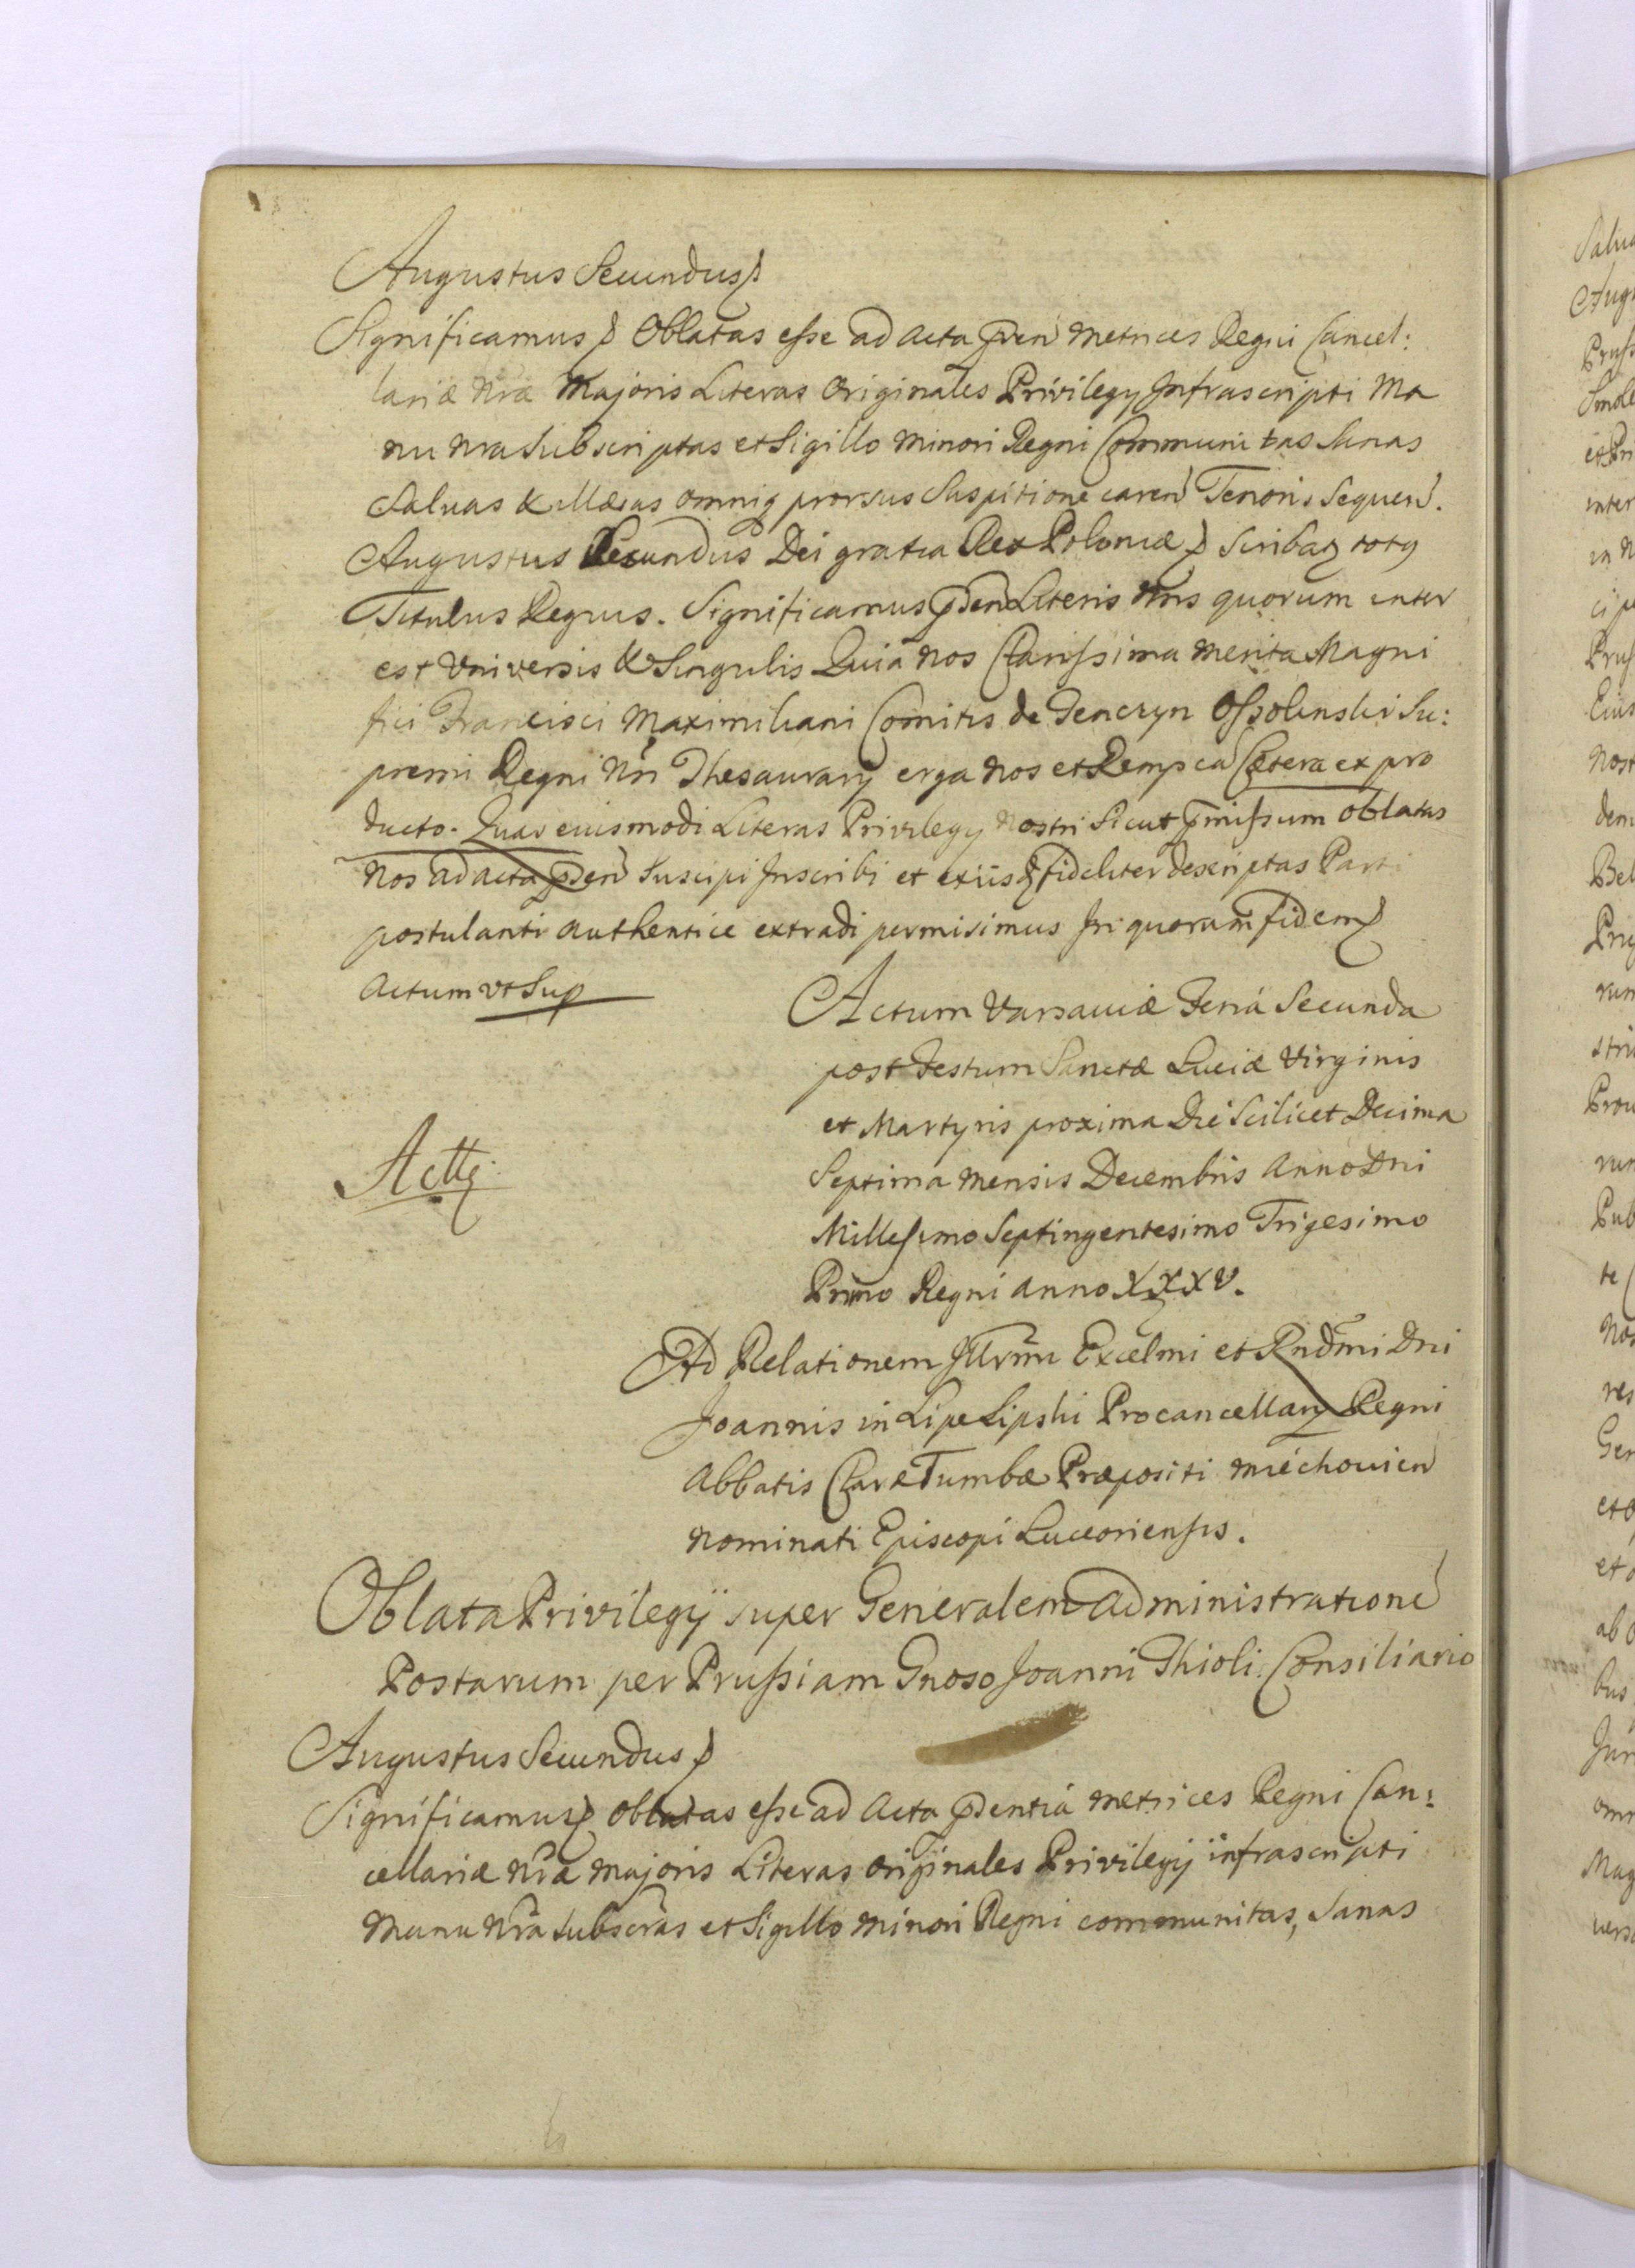 Augustus Secundus
Significamus Oblatas esse ad acta pñeñ metrices Regni Cancel:
lariæ nrae Majoris Literas Originales Privilegÿ Infrascripti Ma
nu nra Subscriptas et Sigillo minori Regni Communitas Sanas
Salvas & illæsas omniq prorsus Suspitione careñ Tenoris Sequeñ.
Augustus Secundus Dei gratia Rex Poloniæ Scribatur totq
Titulus Regius. Significamus pñteñ Literis nris quorum inter
est Universis & Singulis Quia nos Clarissima merita Magni
fici Francisci Maximiliani Comitis de Tenczyn Ossolinski Su:
premi Regni Nri Thesaurarÿ erga nos et Rempcã Cætera ex pro
ducto. Quas eiusmodi Literas Privilegÿ nostri Sicut pmissum oblatas
nos ad acta pñteñ Suscipi Inscribi et exiisdẽ fideliter descriptas Parti
postulanti authentice extradi permisimus In quorum fidem
Actum ut Sup
Actum Varsaviæ Feria Secunda
post Festum Sanctæ Luciæ Virginis
et Martyris proxima Die Scilicet Decima
Septima mensis Decembris Anno Dni
Millesimo Septingentesimo Trigesimo
Primo Regni anno XXXV.
Ad Relationem Illrmi Excelmi et Rndmi Dni
Joannis in Lipe Lipski Procancellarÿ Regni
Abbatis Claræ Tumbæ Præpositi miechovieñ
nominati Episcopi Luceoriensis.
Oblata Privilegÿ super Generalem administrationẽ
Postarum per Prussiam Gnoso Joanni Thioli Consiliario
Augustus Secundus
Significamus oblatas esse ad Acta pñsentia metrices Regni Can:
cellariæ nrae majoris Literas originales Privilegÿ infrascripti
Manu nra subscras et Sigillo minori Regni communitas, Sanas